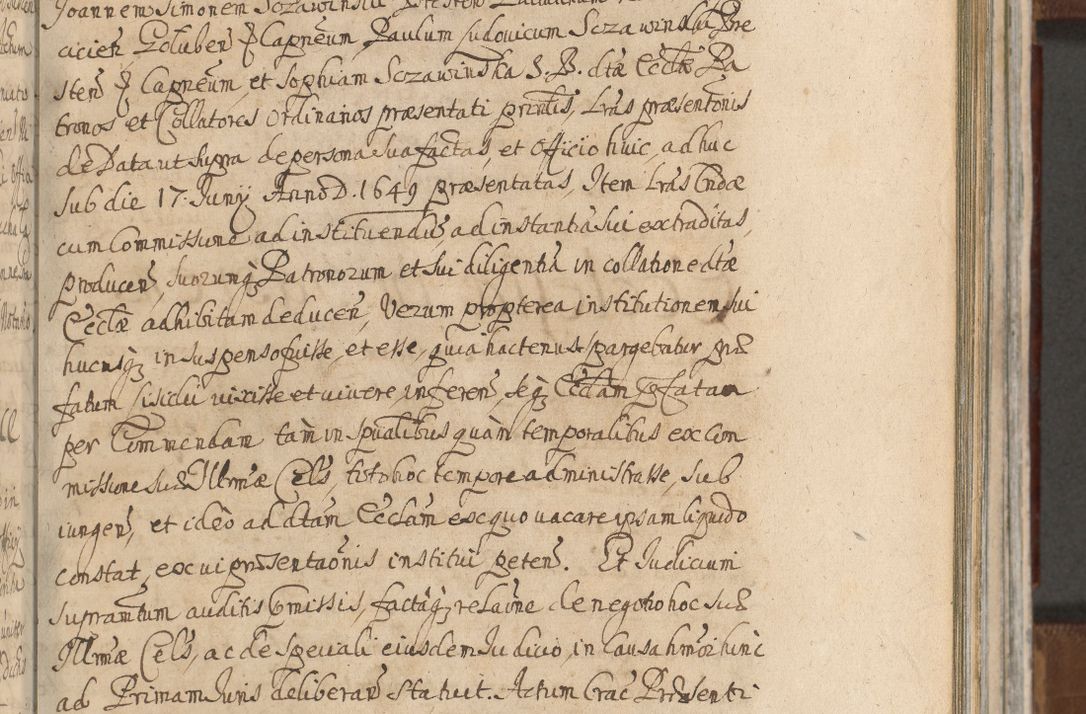 Joannem Simonem Sczawinski
cicien, Goluben P Capneum, Paulum Ludovicum Sczawinski Bre
sten P Capneum, et Sophiam Sczawinska S. B. dtæ Ecclæ Pa
tronos et Collatores Ordinarios præsentati prntis, Lras præsentonis
de Data ut supra de persona sua factas, et Officio huic, ad huc
sub die 17. Junij Anno D. 1649 præsentatas, Item Lras Endæ
cum Commissione ad instituendu, ad instantia sui extraditas,
producen, suorumq Patronorum et sui diligentia in collatione dtæ
Ecclæ adhibitam deducen, Verum propterea institutionem sui
hucusq in suspenso fuisse, et esse, quia hactenus spargebatur præ
fatum vixisse et vivere, inferen, seq Ecclam Præfatam
per Commendam tam in spualibus quam temporalibus ex com
missione suæ Illrmæ Cels, toto hoc tempore administrasse, sub
iungen, et ideo ad dtam Ecclam ex quo vacare ipsam liquido
constat, ex vi præsentaonis institui peten. Et Judicium
supramtum auditis præmissis, factaq relaone de negotio hoc suæ
Illrmæ Cels, ac de speciali eiusdem Judicio, in Causa hmoi hinc
ad Primam Juris deliberan statuit. Actum Crac Præsenti